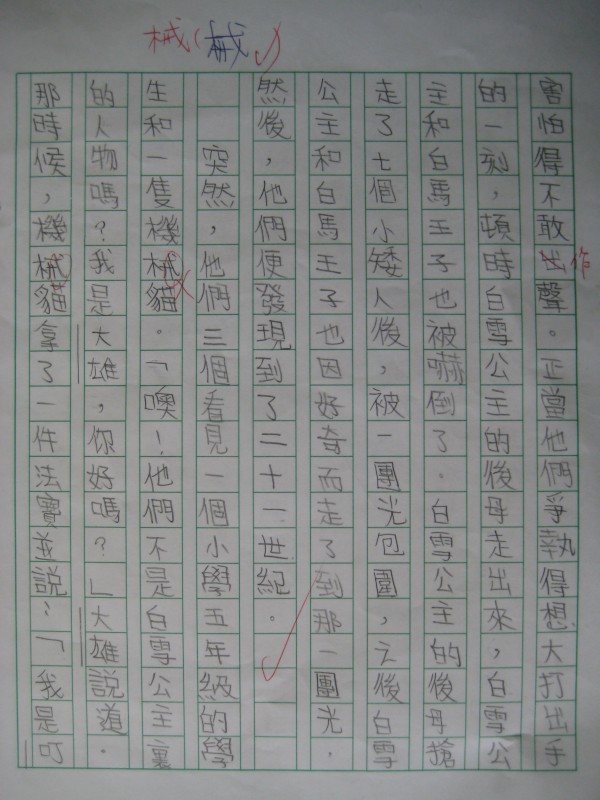 械（械✓）
害怕得不敢出聲。正當他們爭執得想大打出手
作
的一刻，頓時白雪公主的後母走出來，白雪公
主和白馬王子也被嚇倒了。白雪公主的後母搶
走了七個小矮人後，被一團光包圍，之後白雪
公主和白馬王子也因好奇而走了到那一團光，
然後，他們便發現到了二十一世紀。
突然，他們三個看見一個小學五年級的學
生和一隻機械貓。「噢！他們不是白雪公主裏
的人物嗎？我是大雄，你好嗎？」大雄說道。
那時候，機械貓拿了一件法寶並說：「我是叮